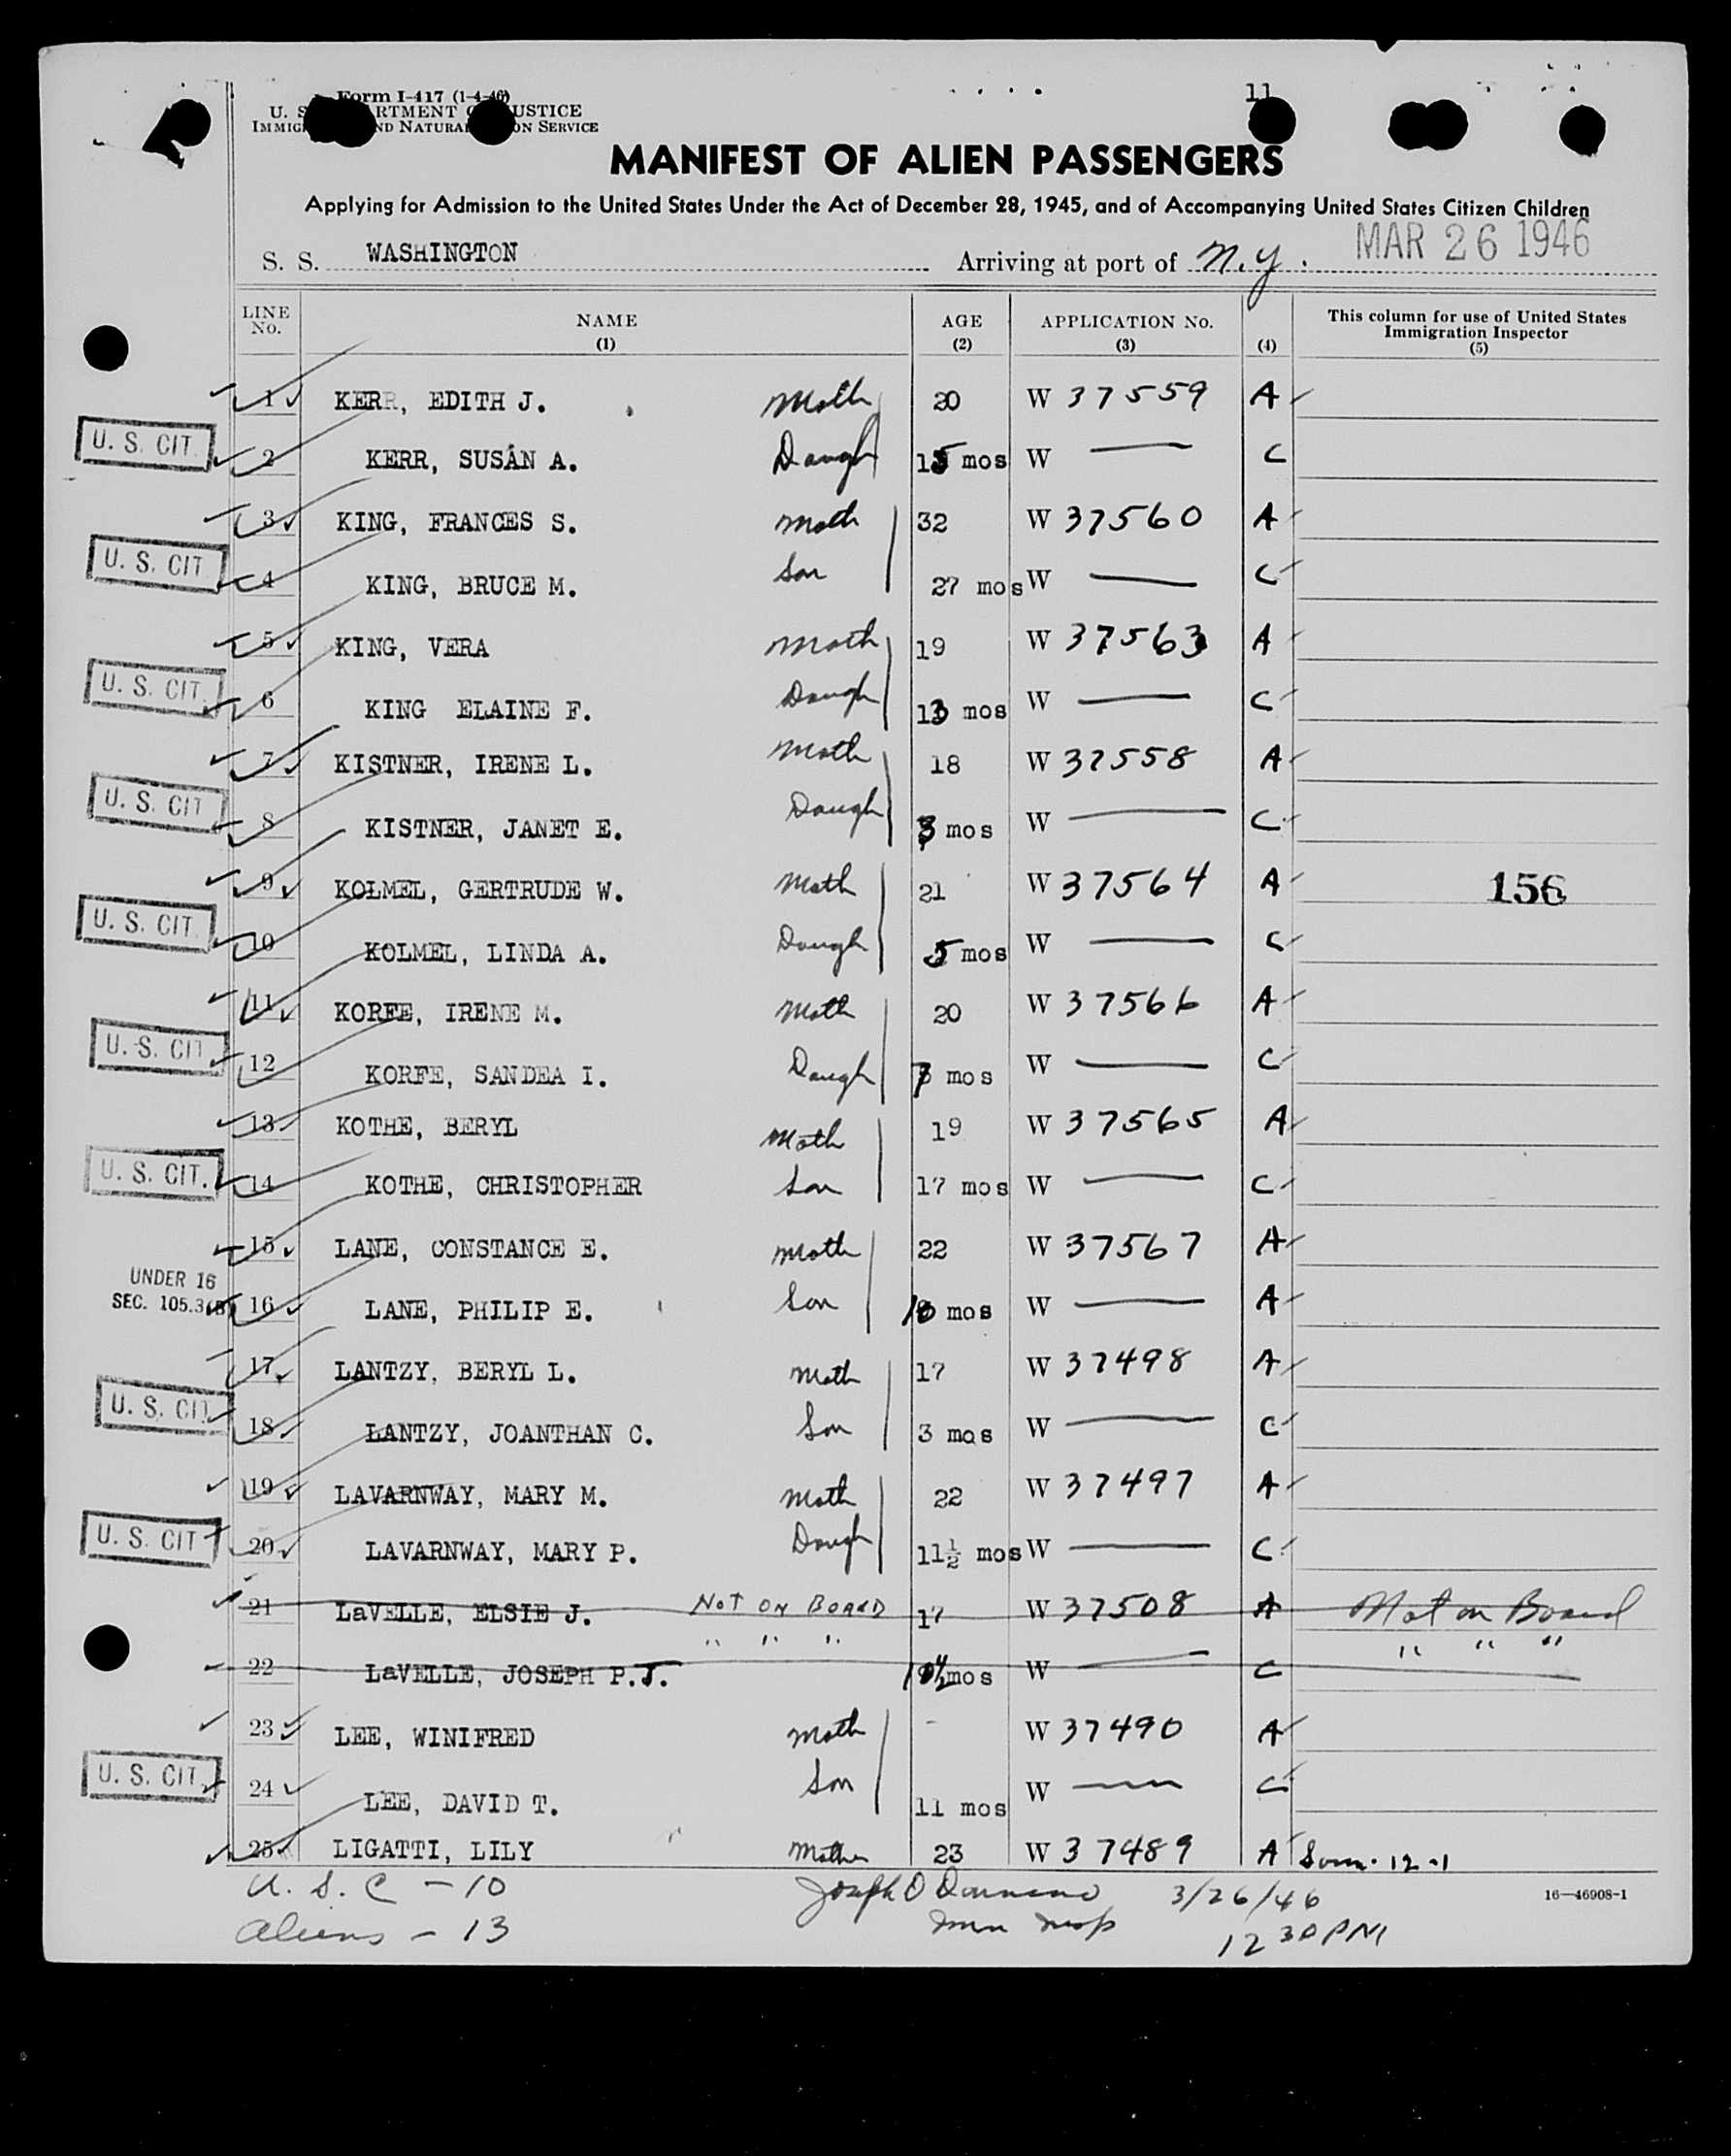 Form I-417 (1-4-46)
11
U. S. DEPARTMENT OF JUSTICE
IMMIGRATION AND NATURALIZATION SERVICE
MANIFEST OF ALIEN PASSENGERS
Applying for Admission to the United States Under the Act of December 28, 1945, and of Accompanying United States Citizen Children
S. S. WASHINGTON Arriving at port of N.Y. MAR 26 1946
LINE No. NAME (1) AGE (2) APPLICATION No. (3) (4) This column for use of United States Immigration Inspector (5)
1 KERR, EDITH J. Moth 20 W 37559 A
U. S. CIT. 2 KERR, SUSAN A. Daugh 15 mos W — C
3 KING, FRANCES S. Moth 32 W 37560 A
U. S. CIT 4 KING, BRUCE M. Son 27 mos W — C
5 KING, VERA Moth 19 W 37563 A
U. S. CIT. 6 KING ELAINE F. Daugh 13 mos W — C
7 KISTNER, IRENE L. Moth 18 W 37558 A
U. S. CIT 8 KISTNER, JANET E. Daugh mos W — C
9 KOLMEL, GERTRUDE W. Moth 21 W 37564 A 156
U. S. CIT. 10 KOLMEL, LINDA A. Daugh 5 mos W — C
11 KORFE, IRENE M. Moth 20 W 37566 A
U. S. CIT 12 KORFE, SANDEA I. Daugh 7 mos W — C
13 KOTHE, BERYL Moth 19 W 37565 A
U. S. CIT. 14 KOTHE, CHRISTOPHER Son 17 mos W — C
15 LANE, CONSTANCE E. Moth 22 W 37567 A
UNDER 16
SEC. 105.3(B) 16 LANE, PHILIP E. Son 10 mos W — A
17 LANTZY, BERYL L. Moth 17 W 37498 A
U. S. CIT 18 LANTZY, JOANTHAN C. Son 3 mos W — C
19 LAVARNWAY, MARY M. Moth 22 W 37497 A
U. S. CIT 20 LAVARNWAY, MARY P. Daugh 11½ mos W — C
21 LaVELLE, ELSIE J. NOT ON BOARD 17 W 37508 A Not on Board
22 LaVELLE, JOSEPH P.J. " " " mos W — C " " "
23 LEE, WINIFRED Moth - W 37490 A
U. S. CIT. 24 LEE, DAVID T. Son 11 mos W — C
25 LIGATTI, LILY Mother 23 W 37489 A 12-1
U. S. C - 10 Joseph D 3/26/46 16—46908-1
Aliens - 13 Imm Insp 12 30 PM